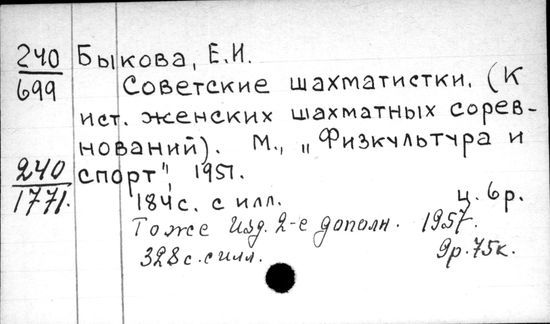 240 Быкова, Е.И.
699 Советские шахматистки. (К
ист. женских шахматных сорев-
нований). М., „Физкультура и
240 спорт", 1951.
1771. 184с. с илл. ц. 6р.
Тоже Изд. 2-е дополн. 1957.
328с. с илл. 9р.75к.